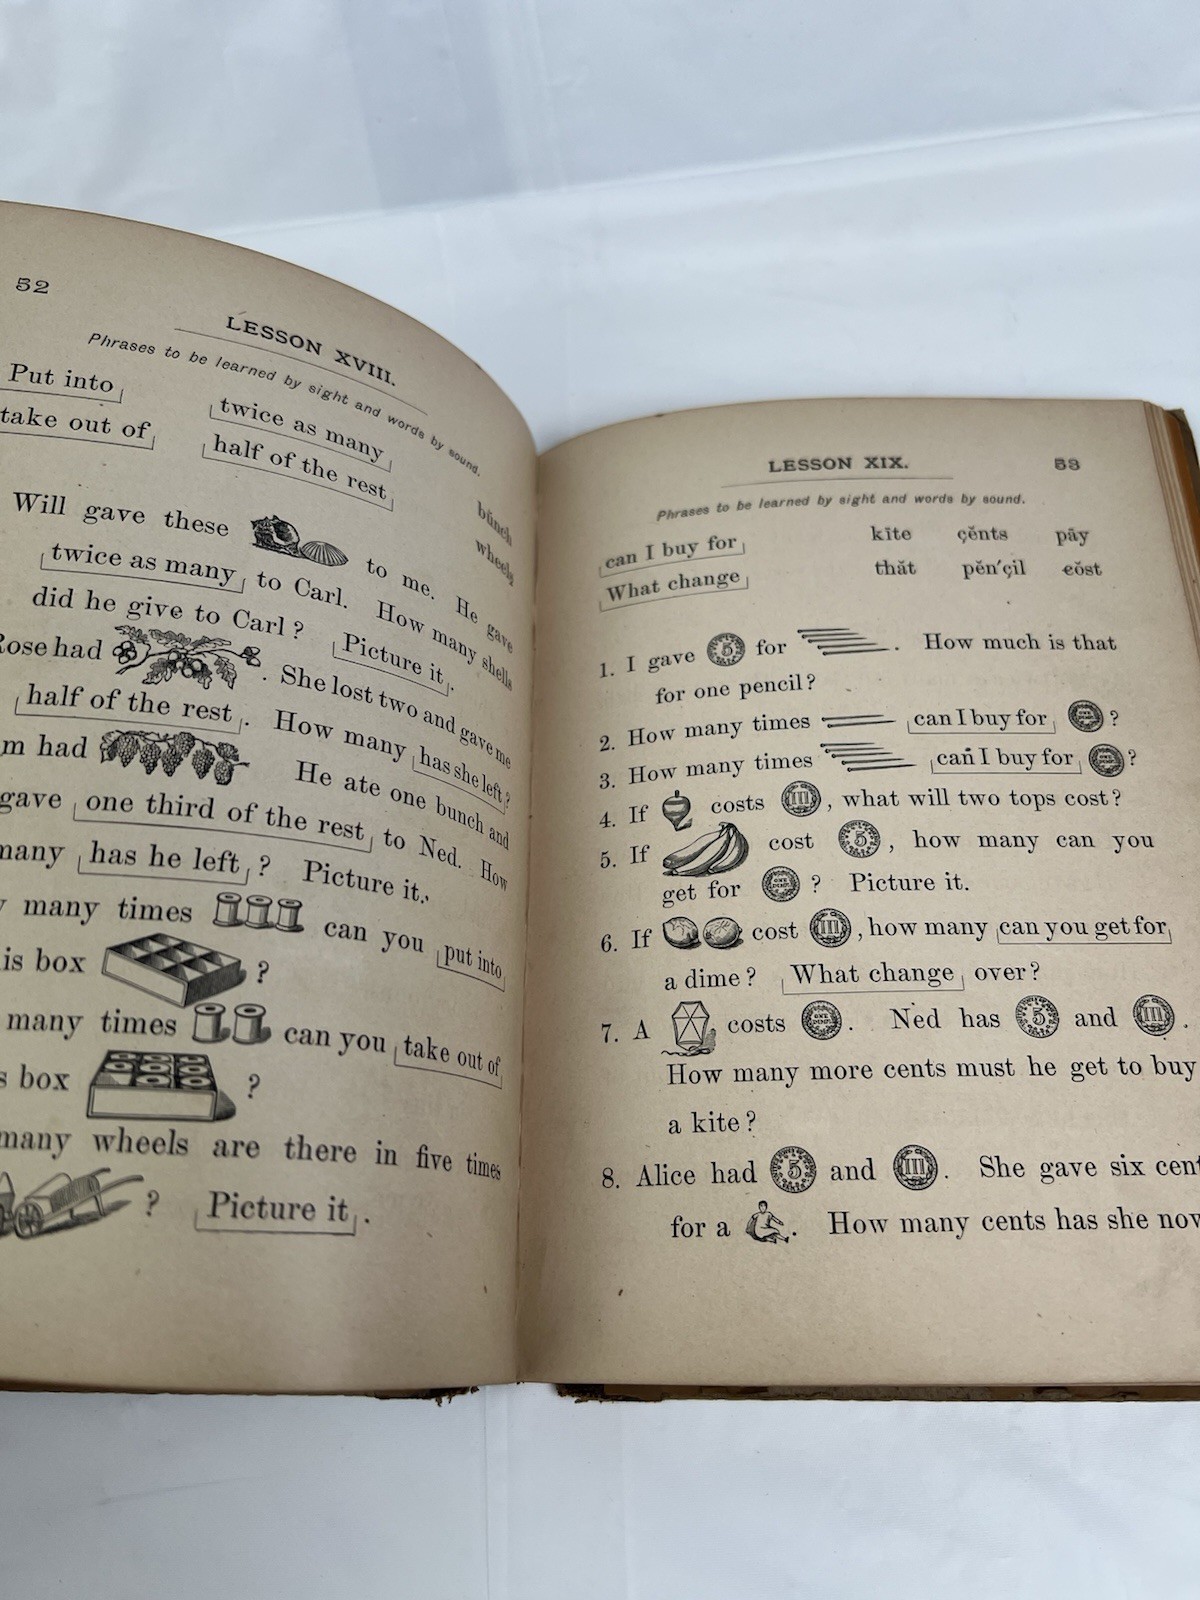 52
LESSON XVIII.
Phrases to be learned by sight and words by sound.
Put into
twice as many
bŭnch
take out of
half of the rest
wheels
Will gave these to me. He gave
twice as many to Carl. How many shells
did he give to Carl? Picture it.
Rose had . She lost two and gave me
half of the rest. How many has she left?
m had He ate one bunch and
gave one third of the rest to Ned. How
many has he left? Picture it.
many times can you put into
is box ?
many times can you take out of
s box ?
many wheels are there in five times
? Picture it.
LESSON XIX. 53
Phrases to be learned by sight and words by sound.
can I buy for kīte çĕnts pāy
What change thăt pĕn′çil cŏst
1. I gave 5 for . How much is that
for one pencil?
2. How many times can I buy for ONE DIME ?
3. How many times can I buy for ONE DIME ?
4. If costs III, what will two tops cost?
5. If cost 5, how many can you
get for ONE DIME ? Picture it.
6. If cost III, how many can you get for
a dime? What change over?
7. A costs ONE DIME. Ned has 5 and III.
How many more cents must he get to buy
a kite?
8. Alice had 5 and III. She gave six cent
for a . How many cents has she now